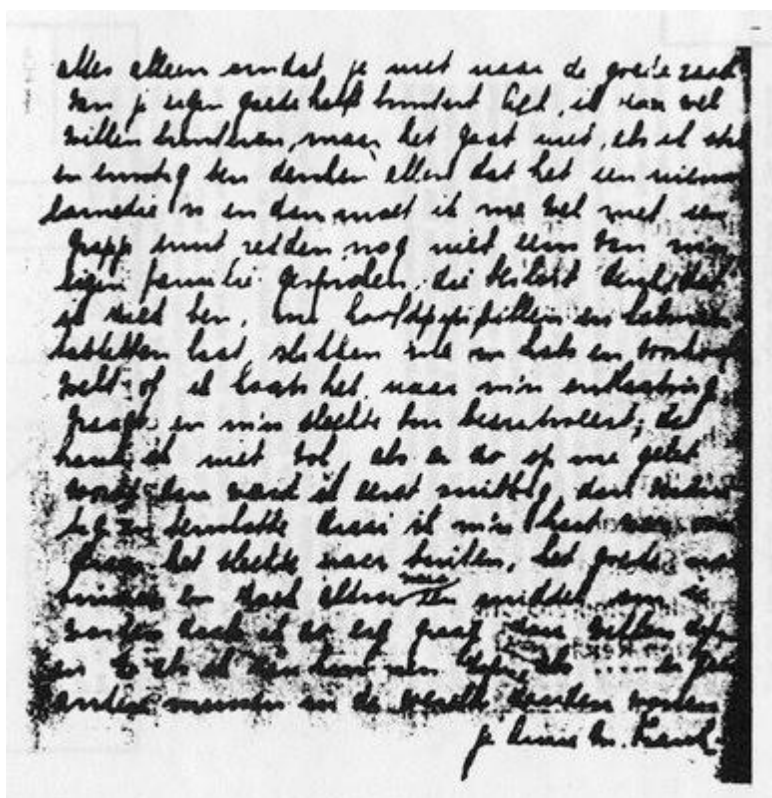 alles alleen omdat je niet naar de goede raad
van je eigen goede helft luistert. Ach, ik zou wel
willen luisteren, maar het gaat niet, als ik stil
en ernstig ben denken allen dat het een nieuwe
comedie is en dan moet ik me wel met een
grapje eruit redden, nog niet eens van m'n
eigen familie gesproken, die beslist denkt dat
ik ziek ben, me hoofdpijnpillen en kalmeer
tabletten laat slikken me in hals en voorhoofd
voelt of ik koorts heb, naar m'n ontlasting
vraagt en m'n slechte bui becritiseert, dat
houd ik niet vol, als er zo op me gelet
wordt dan word ik eerst snibbig, dan verdrie
tig en tenslotte draai ik m'n hart weer om
draai het slechte naar buiten, het goede naar
binnen en zoek aldoor naar een middel om te
worden zoals ik zo erg graag zou willen zijn
en zo als ik zou kunnen zijn, als ..... er geen
andere mensen in de wereld zouden wonen.
je Anne M. Frank.